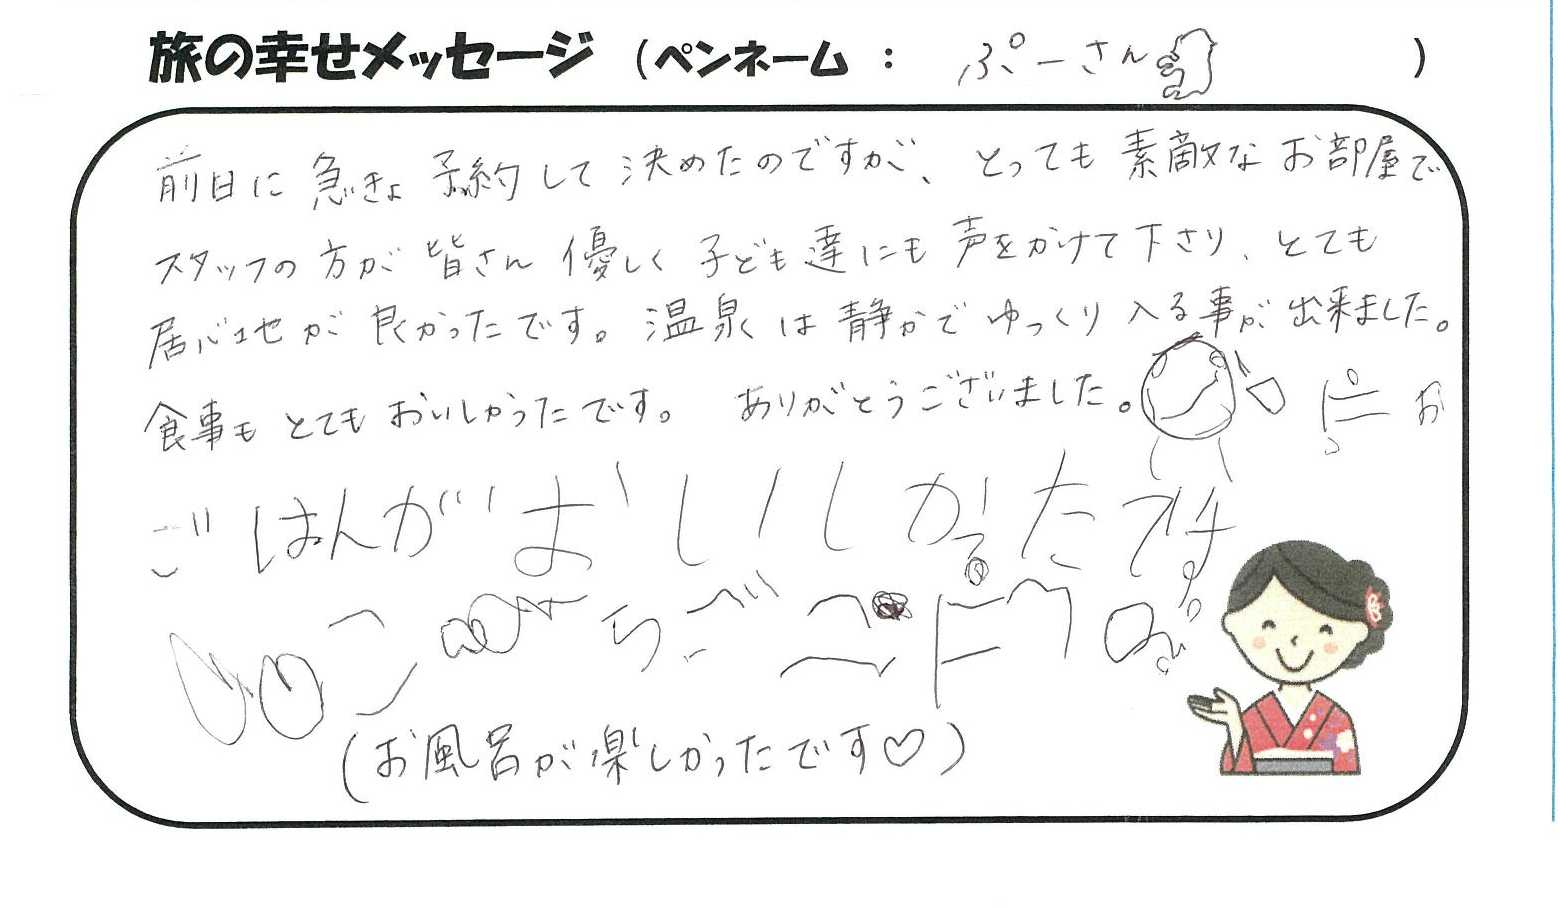 旅の幸せメッセージ (ペンネーム : ぷーさん )
前日に急きょ予約して決めたのですが、とっても素敵なお部屋で
スタッフの方が皆さん優しく子ども達にも声をかけて下さり、とても
居心地が良かったです。温泉は静かでゆっくり入る事が出来ました。
食事もとてもおいしかったです。ありがとうございました。
ごはんがおいしかたです
(お風呂が楽しかったです♡)